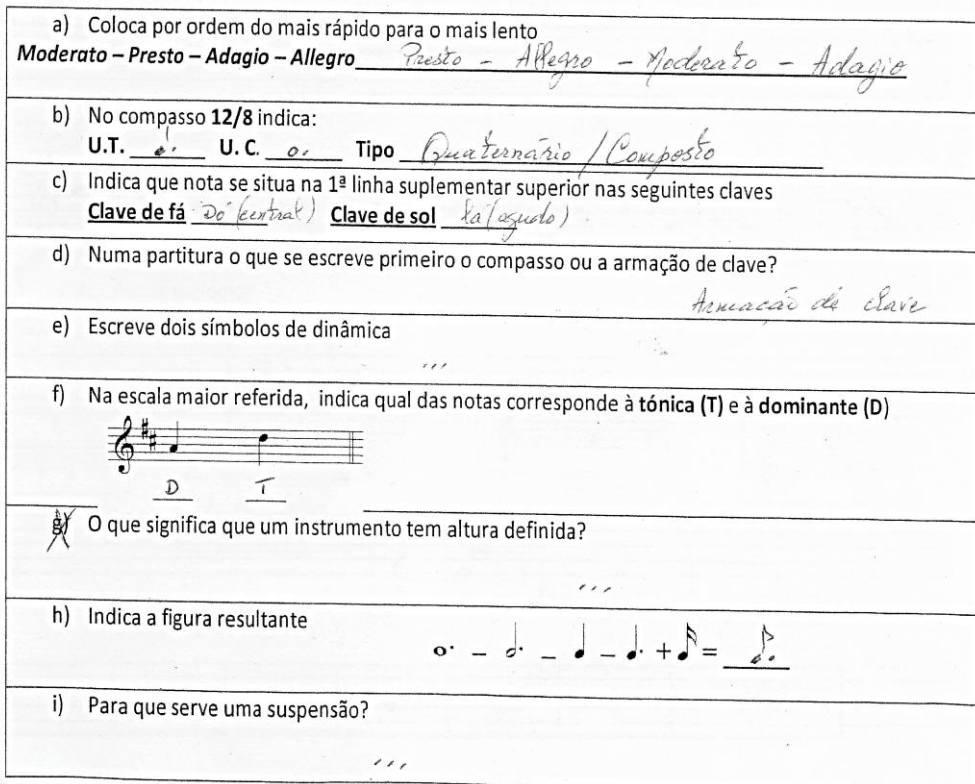 a) Coloca por ordem do mais rápido para o mais lento
Moderato – Presto – Adagio – Allegro Presto - Allegro - Moderato - Adagio
b) No compasso 12/8 indica:
U.T. ♩. U. C. o. Tipo Quaternário / Composto
c) Indica que nota se situa na 1ª linha suplementar superior nas seguintes claves
Clave de fá Dó (central) Clave de sol lá (agudo)
d) Numa partitura o que se escreve primeiro o compasso ou a armação de clave?
Armação de clave
e) Escreve dois símbolos de dinâmica
, , ,
f) Na escala maior referida, indica qual das notas corresponde à tónica (T) e à dominante (D)
D T
g) O que significa que um instrumento tem altura definida?
, , ,
h) Indica a figura resultante
i) Para que serve uma suspensão?
, , ,